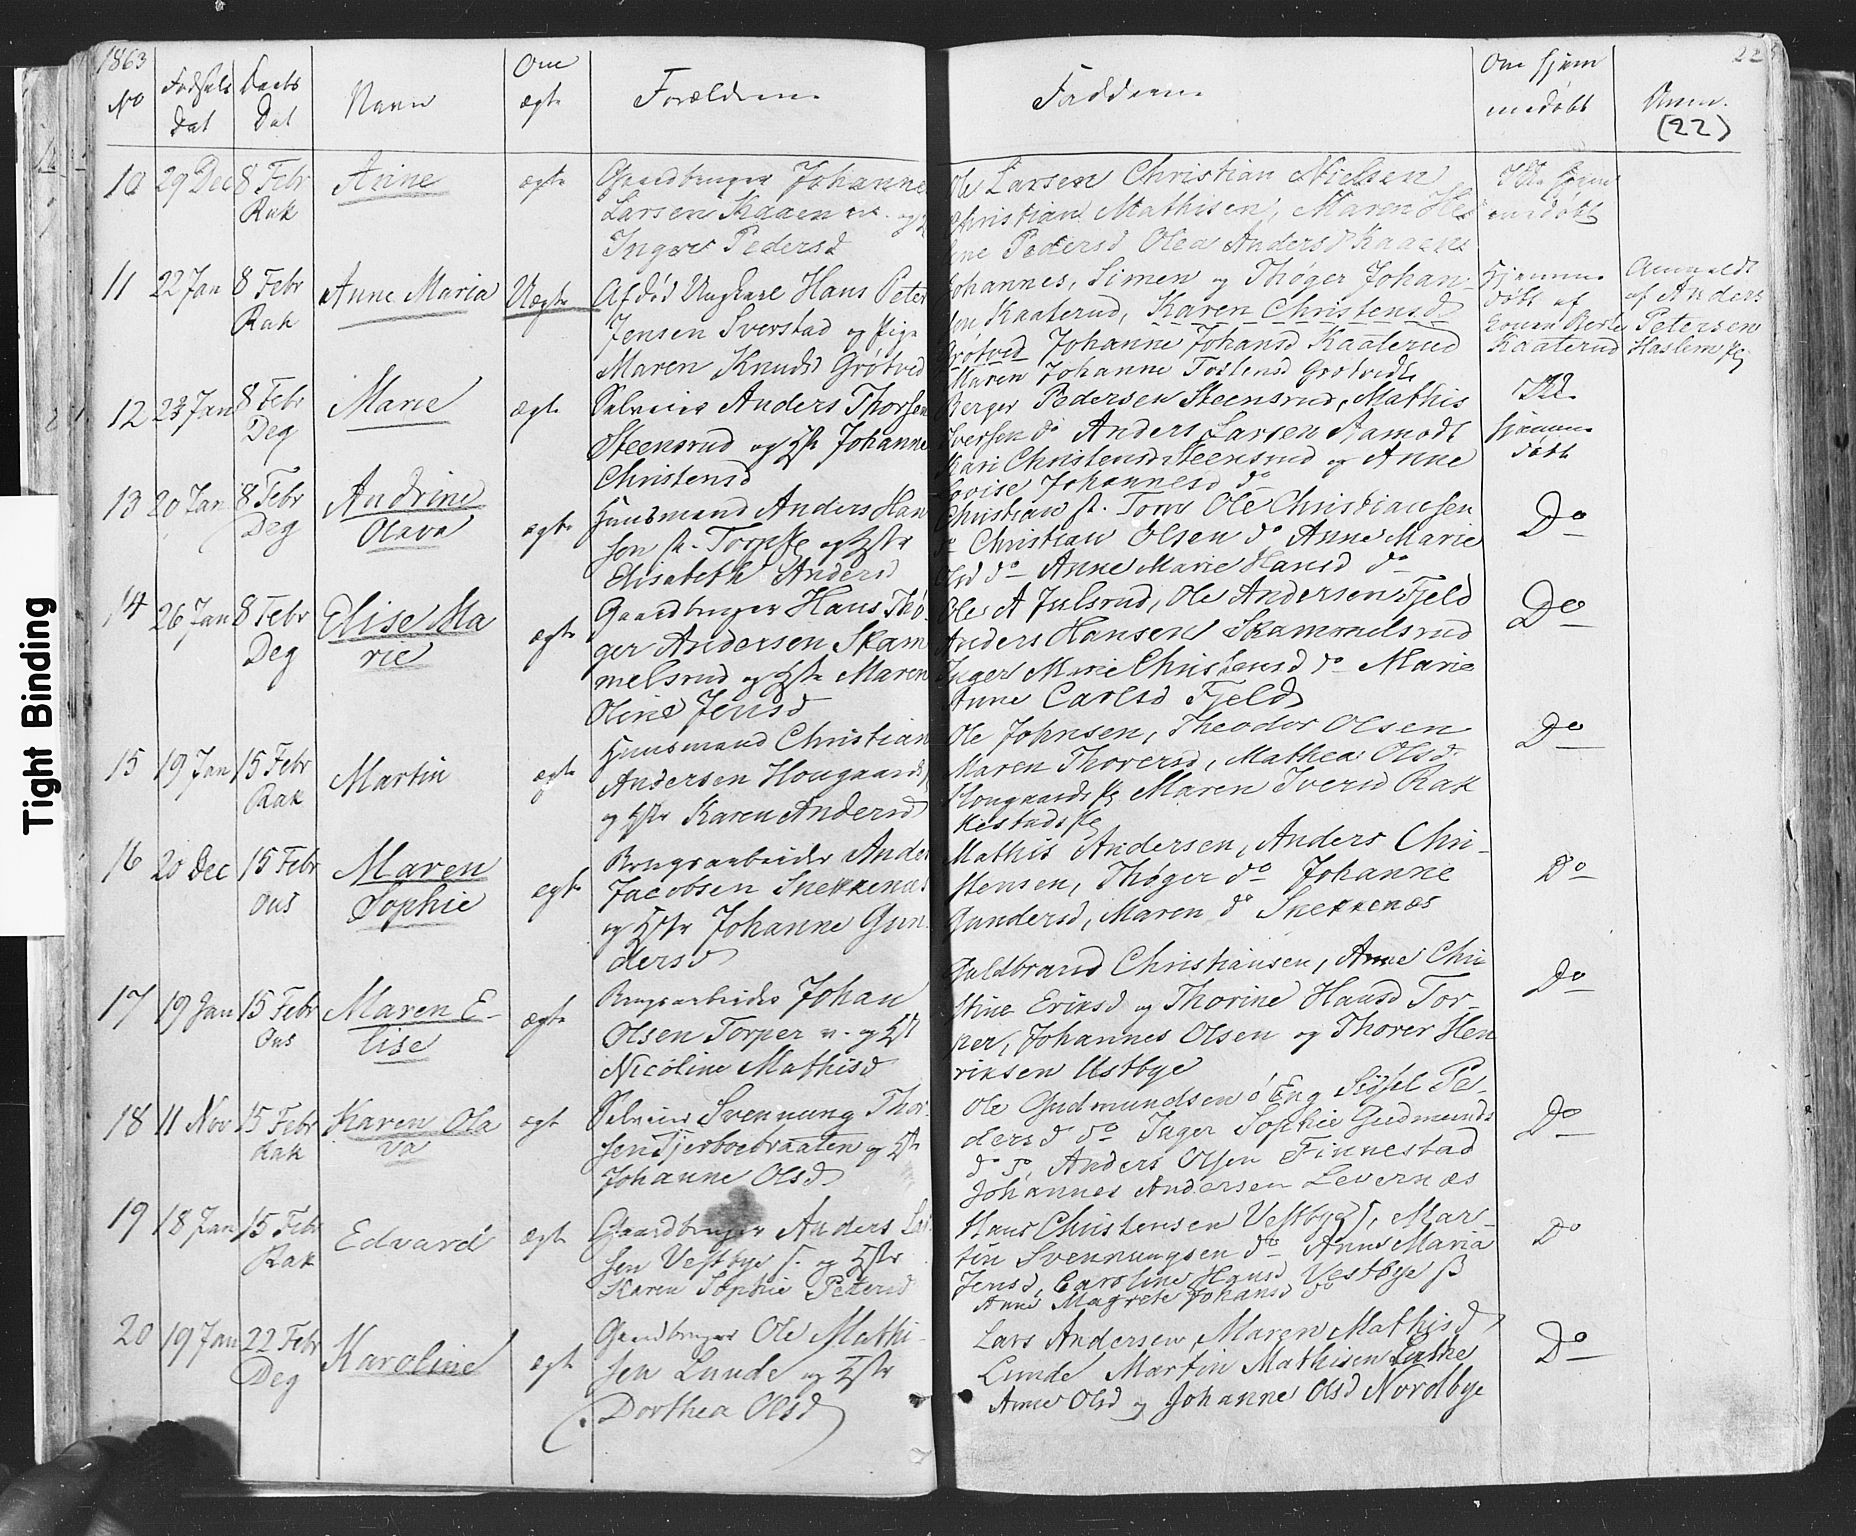 1863
No
Fødsels
Dat
Daabs
Dat
Navn
Om
ægte
Forældrene
Fadderne
Om hjem
medøbt
Anm.
22
(22)
10 29 Dec 8 Febr
Rak
Anne
ægte
Gaardbruger Johannes
Larsen Kaaen og
Inger Pedersd
Ole Larsen Christian Nielsen
Christian Mathisen, Maren He
ine Pedersd Olea Andersd Kaaen
Ikke hjem
medøbt
11 22 Jan 8 Febr
Rak
Anne Maria
Uægte
Afdød Ungkarl Hans Peter
Jensen Sverstad og Pige
Maren Knudsd Grøtved
Johannes, Simen og Thøger Johan-
sen Kaaterud, Karen Christensd
Grøtved Johanne Johansd Kaaterud
Maren Johanne Torstensd Grøtvedt
Hjemme
døbt af
Kaaterud
Anmeldt
af Anders
Petersen
Haslem
12 23 Jan 8 Febr
Deg
Marie
ægte
Selveier Anders Thorsen
Steensrud og Hst Johanne
Christensd
Berger Pedersen Steensrud, Mathis
Iversen do Anders Larsen Aamodt
Kari Christensd Steensrud og Anne
Lovise Johannesd do
Ikke
hjemme
døbt
13 20 Jan 8 Febr
Deg
Andrine
Olava
ægte
Huusmand Anders Han
sen Torpe og Hstr
Elisabeth Andersd
Christian Torp Ole Christiansen
do Christian Olsen do Anne Marie
Olsd do Anne Marie Hansd do
Do
14 26 Jan 8 Febr
Deg
Elise Ma
rie
ægte
Gaardbruger Hans Thø-
ger Andersen Skam
melsrud og Hstr Maren
Oline Jensd
Ole A Julsrud, Ole Andersen Fjeld
Anders Hansen Skammelsrud
Inger Marie Christensd do Marie
Anne Carlsd Fjeld
Do
15 19 Jan 15 Febr
Rak
Martin
ægte
Huusmand Christian
Andersen Hougaards
og Hstr Karen Andersd
Ole Johnsen, Theodor Olsen
Maren Thorersd, Mathea Olsd
Hougaards Maren Iversd Rak
kestads
Do
16 20 Dec 15 Febr
Ous
Maren
Sophie
ægte
Brugsarbeider Anders
Jacobsen Snekkenæs
og Hstr Johanne Gun
dersd
Mathis Andersen, Anders Chri-
stensen, Thøger do Johanne
Gundersd, Maren do Snekkenæs
Do
17 19 Jan 15 Febr
Ous
Maren E-
lise
ægte
Brugsarbeider Johan
Olsen Torper n. og Hst
Nicoline Mathisd
Guldbrand Christiansen, Anne Chri
stine Eriksd og Thorine Hansd Tor-
per, Johannes Olsen og Thorer Hen
riksen Ustbye
Do
18 11 Nov 15 Febr
Rak
Karen Ola
va
ægt
Selveier Svennung Thor-
sen Tjerboebraaten og Hst
Johanne Olsd
Ole Gudmundsen ø Eng Sissel Pe-
dersd do Inger Sophie Gudmunds
d do, Anders Olsen Finnestad
Johannes Andersen Levernæs
Do
19 18 Jan 15 Febr
Rak
Edvard
ægte
Gaardbruger Anders Lar
sen Vestbye S. og Hstr
Karen Sophie Petersd
Hans Christensen Vestbye S, Mar-
tin Svennungsen do Anne Maria
Jensd, Caroline Hansd Vestbye
Anne Magrete Johansd do
Do
20 19 Jan 22 Febr
Deg
Karoline
ægt
Gaardbruger Ole Mathi-
sen Lunde og Hstr
Dorthea Olsd
Lars Andersen, Maren Mathisd
Lunde Martin Mathisen
Anne Olsd og Johanne Olsd Nordbye
Do
Tight Binding